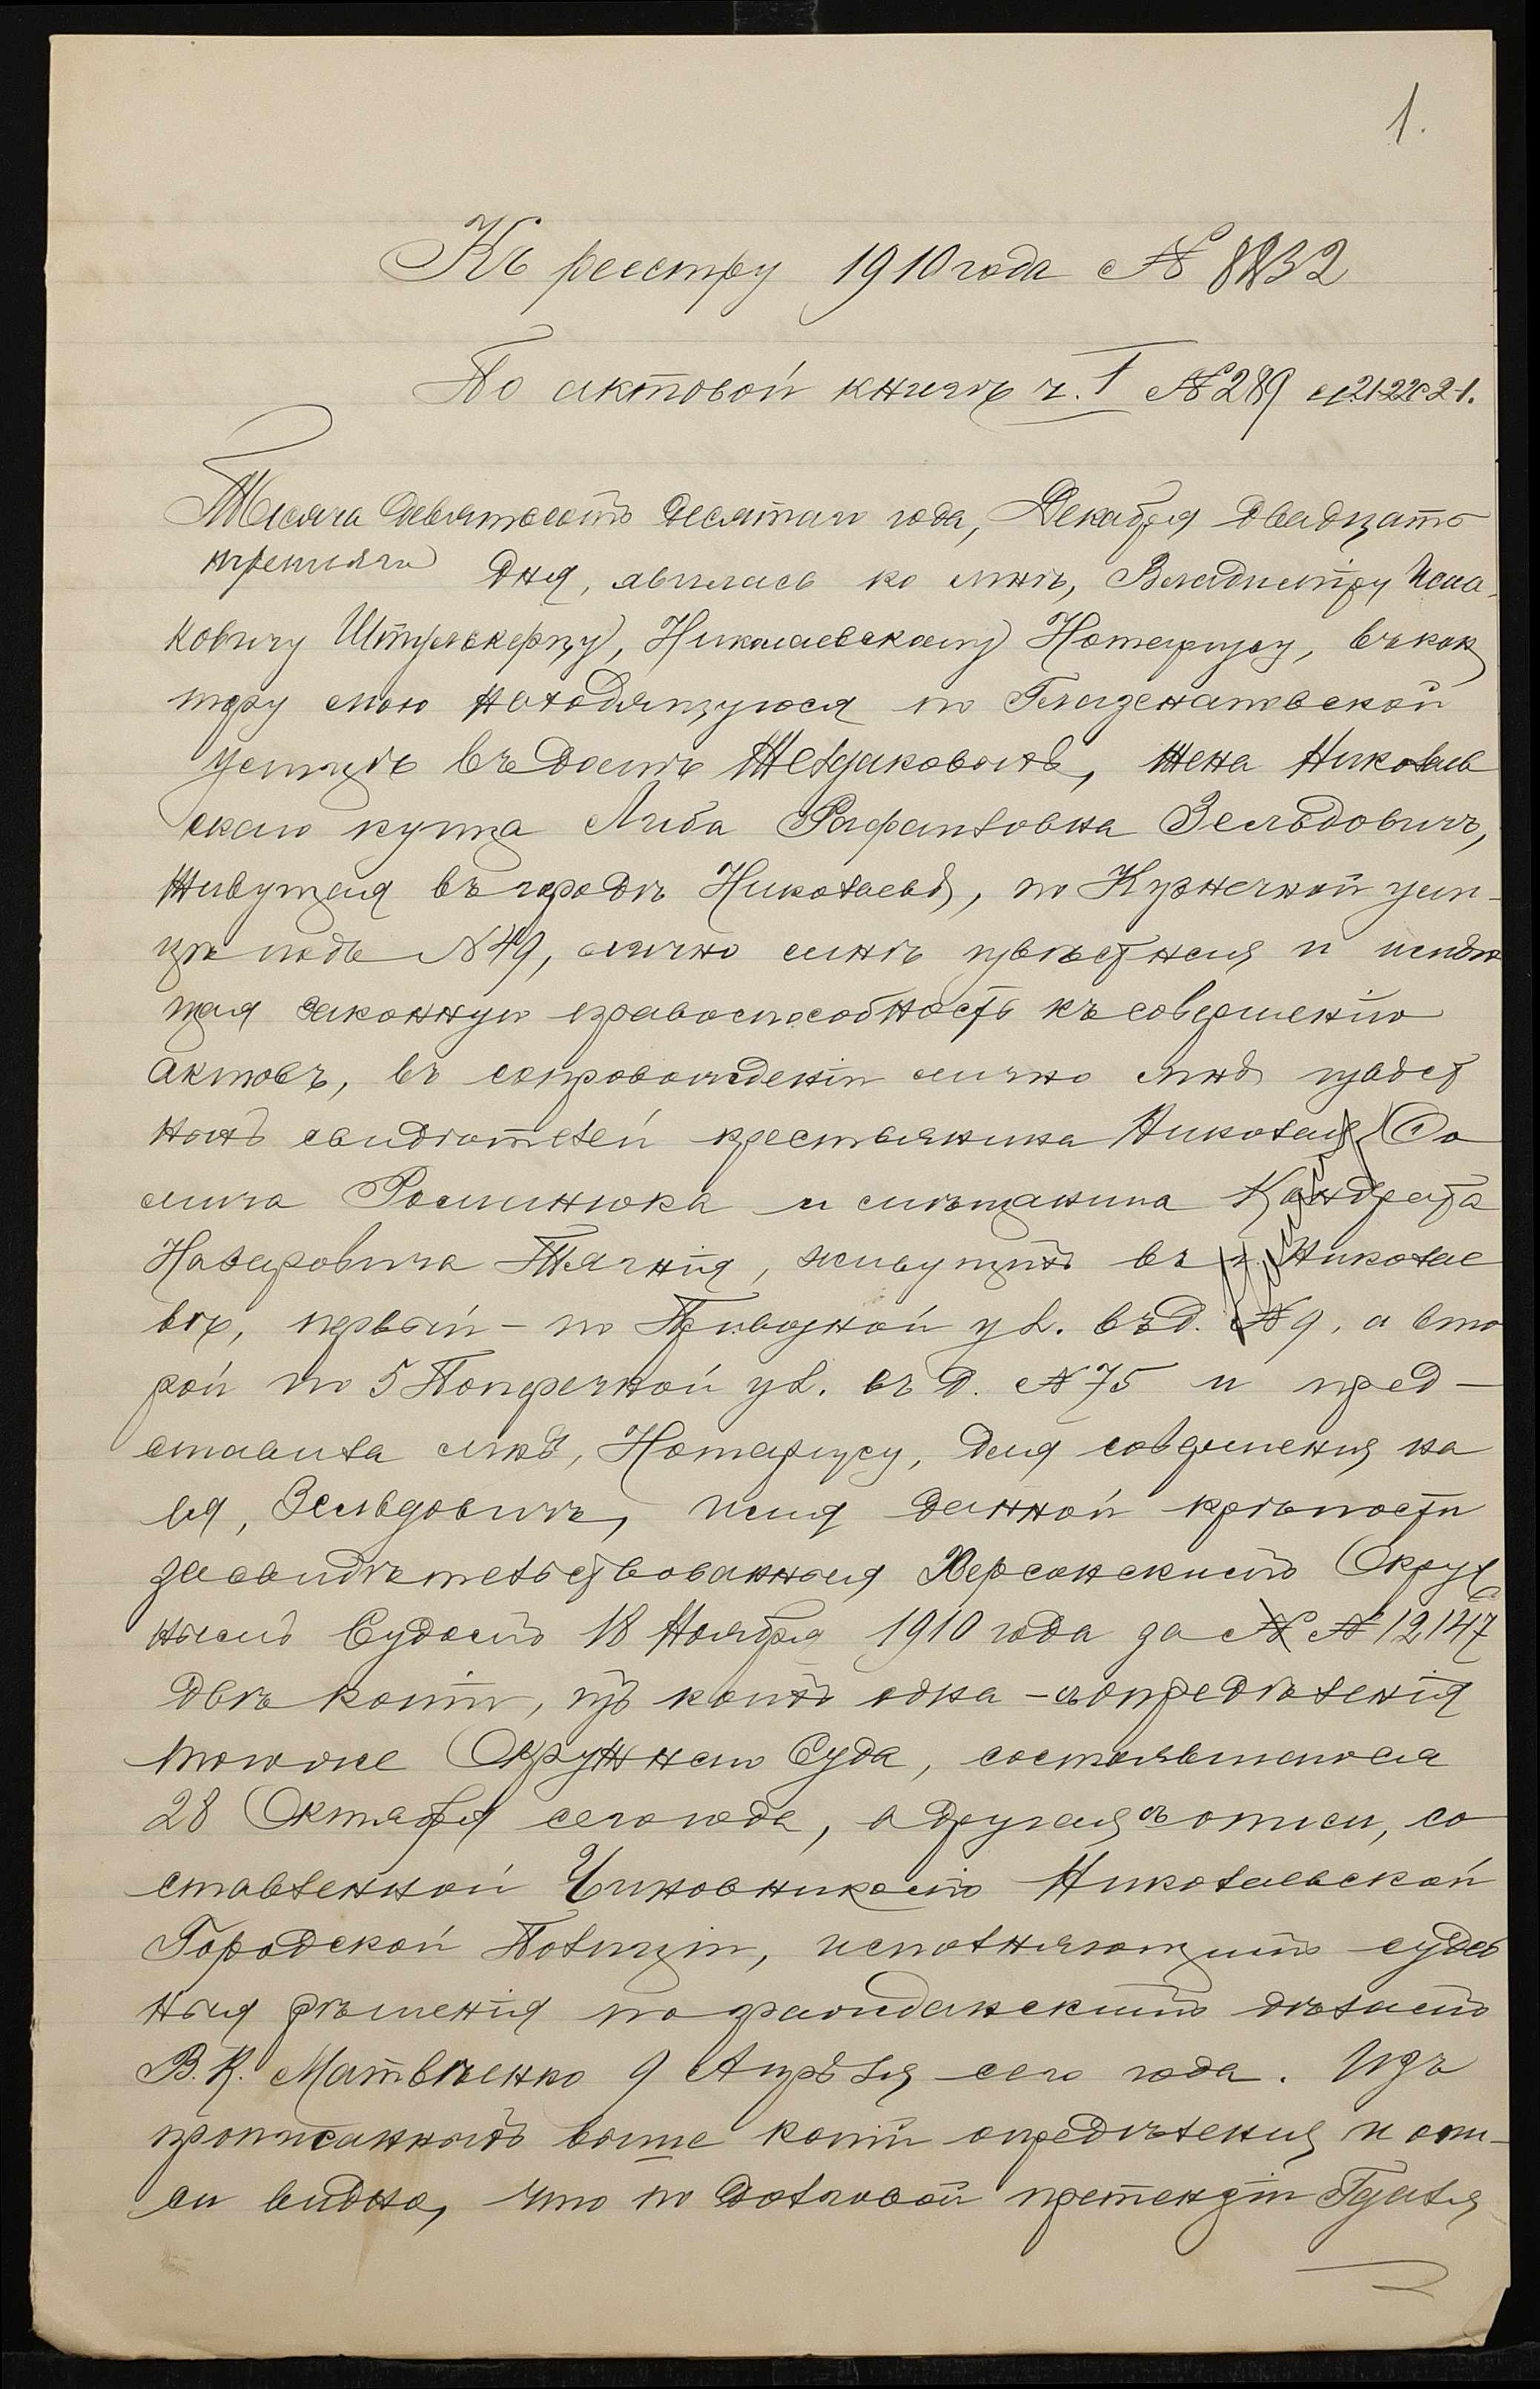 1.
Къ реестру 1910 года № 8832
По актовой книгѣ ч. I № 289
Тысяча девятьсотъ десятаго года, Декабря двадцать
третьяго дня, явилась ко мнѣ, Владиміру Исаа-
ковичу Штральсу, Николаевскому Нотаріусу, въ кон
тору мою находящуюся по Глазенаповской
улицѣ въ домѣ, жена Николаев
скаго купца Либа Рафаиловна Зельдовичъ,
живущая въ городѣ Николаевѣ, по Кузнечной ули-
цѣ подъ № 49, лично мнѣ извѣстная и имѣю
щая законную правоспособность къ совершенію
актовъ, въ сопровожденіи лично мнѣ извѣст
ныхъ свидѣтелей крестьянина Николая Фо
мича Романюка и мѣщанина Кондрата
Назаровича Тягнія, живущихъ въ г. Николае
вѣ, первый - по Привозной ул. въ д. № 9, а вто
рой по 5 Поперечной ул. въ д. № 75 и пред-
ставила мнѣ, Нотаріусу, для совершенія на
ея, Зельдовичъ, имя данной крѣпости
засвидѣтельствованныя Херсонскимъ Окруж
нымъ Судомъ 18 Ноября 1910 года за № № 12147
двѣ копіи, изъ коихъ одна - съ опредѣленія
того же Окружнаго Суда, состоявшагося
28 Октября сего года, а другая съ описи, со
ставленной Чиновникомъ Николаевской
Городской Полиціи, исполняющимъ судеб
ныя рѣшенія по гражданскимъ дѣламъ
В. К. Матвѣенко 9 Апрѣля сего года. Изъ
прописанныхъ выше копій опредѣленія и опи-
си видно, что по долговой претензіи